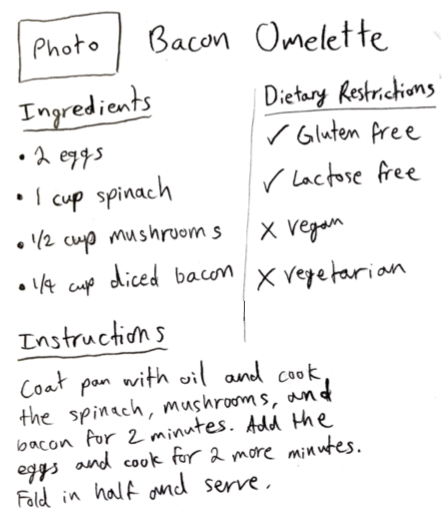 Photo
Bacon Omelette
Ingredients
• 2 eggs
• 1 cup spinach
• 1/2 cup mushrooms
• 1/4 cup diced bacon
Dietary Restrictions
✓ Gluten free
✓ Lactose free
X vegan
X vegetarian
Instructions
Coat pan with oil and cook
the spinach, mushrooms, and
bacon for 2 minutes. Add the
eggs and cook for 2 more minutes.
Fold in half and serve.